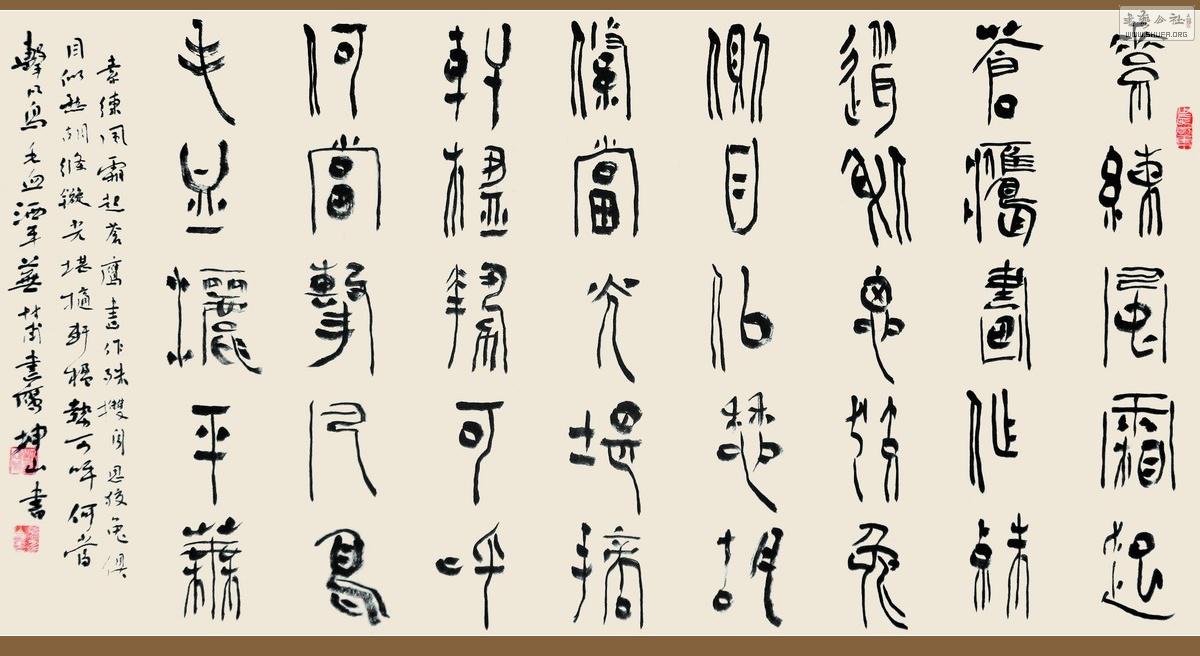 素練風霜起
蒼鷹畫作殊
思狡兔
側目似愁胡
光堪摘
軒楹勢可呼
何當擊凡鳥
毛血灑平蕪
素練風霜起蒼鷹畫作殊思狡兔
目似愁胡絛鏇光堪擿軒楹勢可呼何當
擊凡鳥毛血洒平蕪杜甫畫鷹坤山書
书艺公社
WWW.SHUFA.ORG